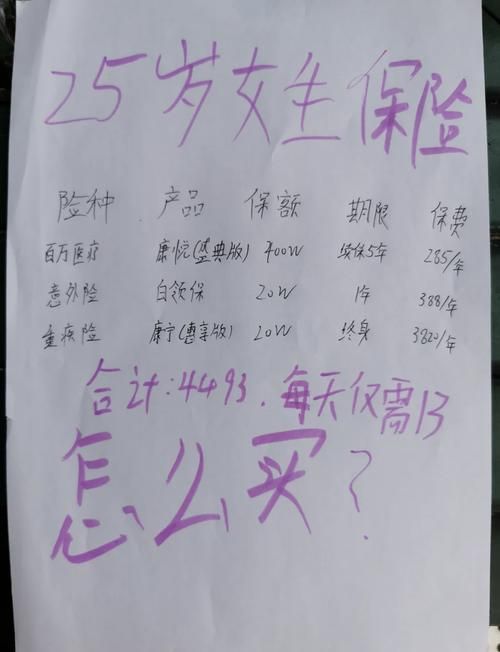 25岁女生保险
险种 产品 保额 期限 保费
百万医疗 康悦(盛典版) 400W 续保5年 285/年
意外险 白领保 20W 1年 388/年
重疾险 康宁(惠享版) 20W 终身 3820/年
合计:4493.每天仅需13
怎么买?